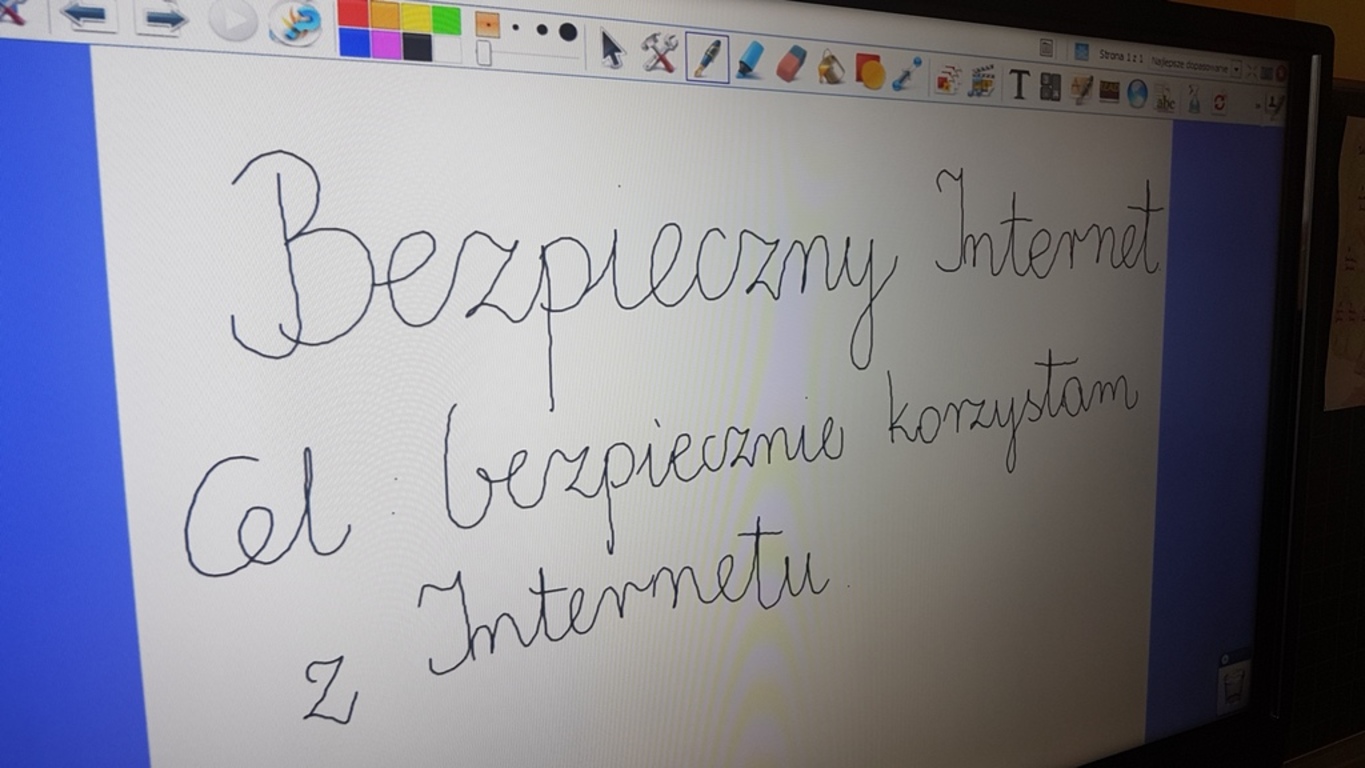 Strona 1 z 1 Najlepsze dopasowanie
T
abc
Bezpieczny Internet.
Cel: bezpiecznie korzystam
z Internetu.